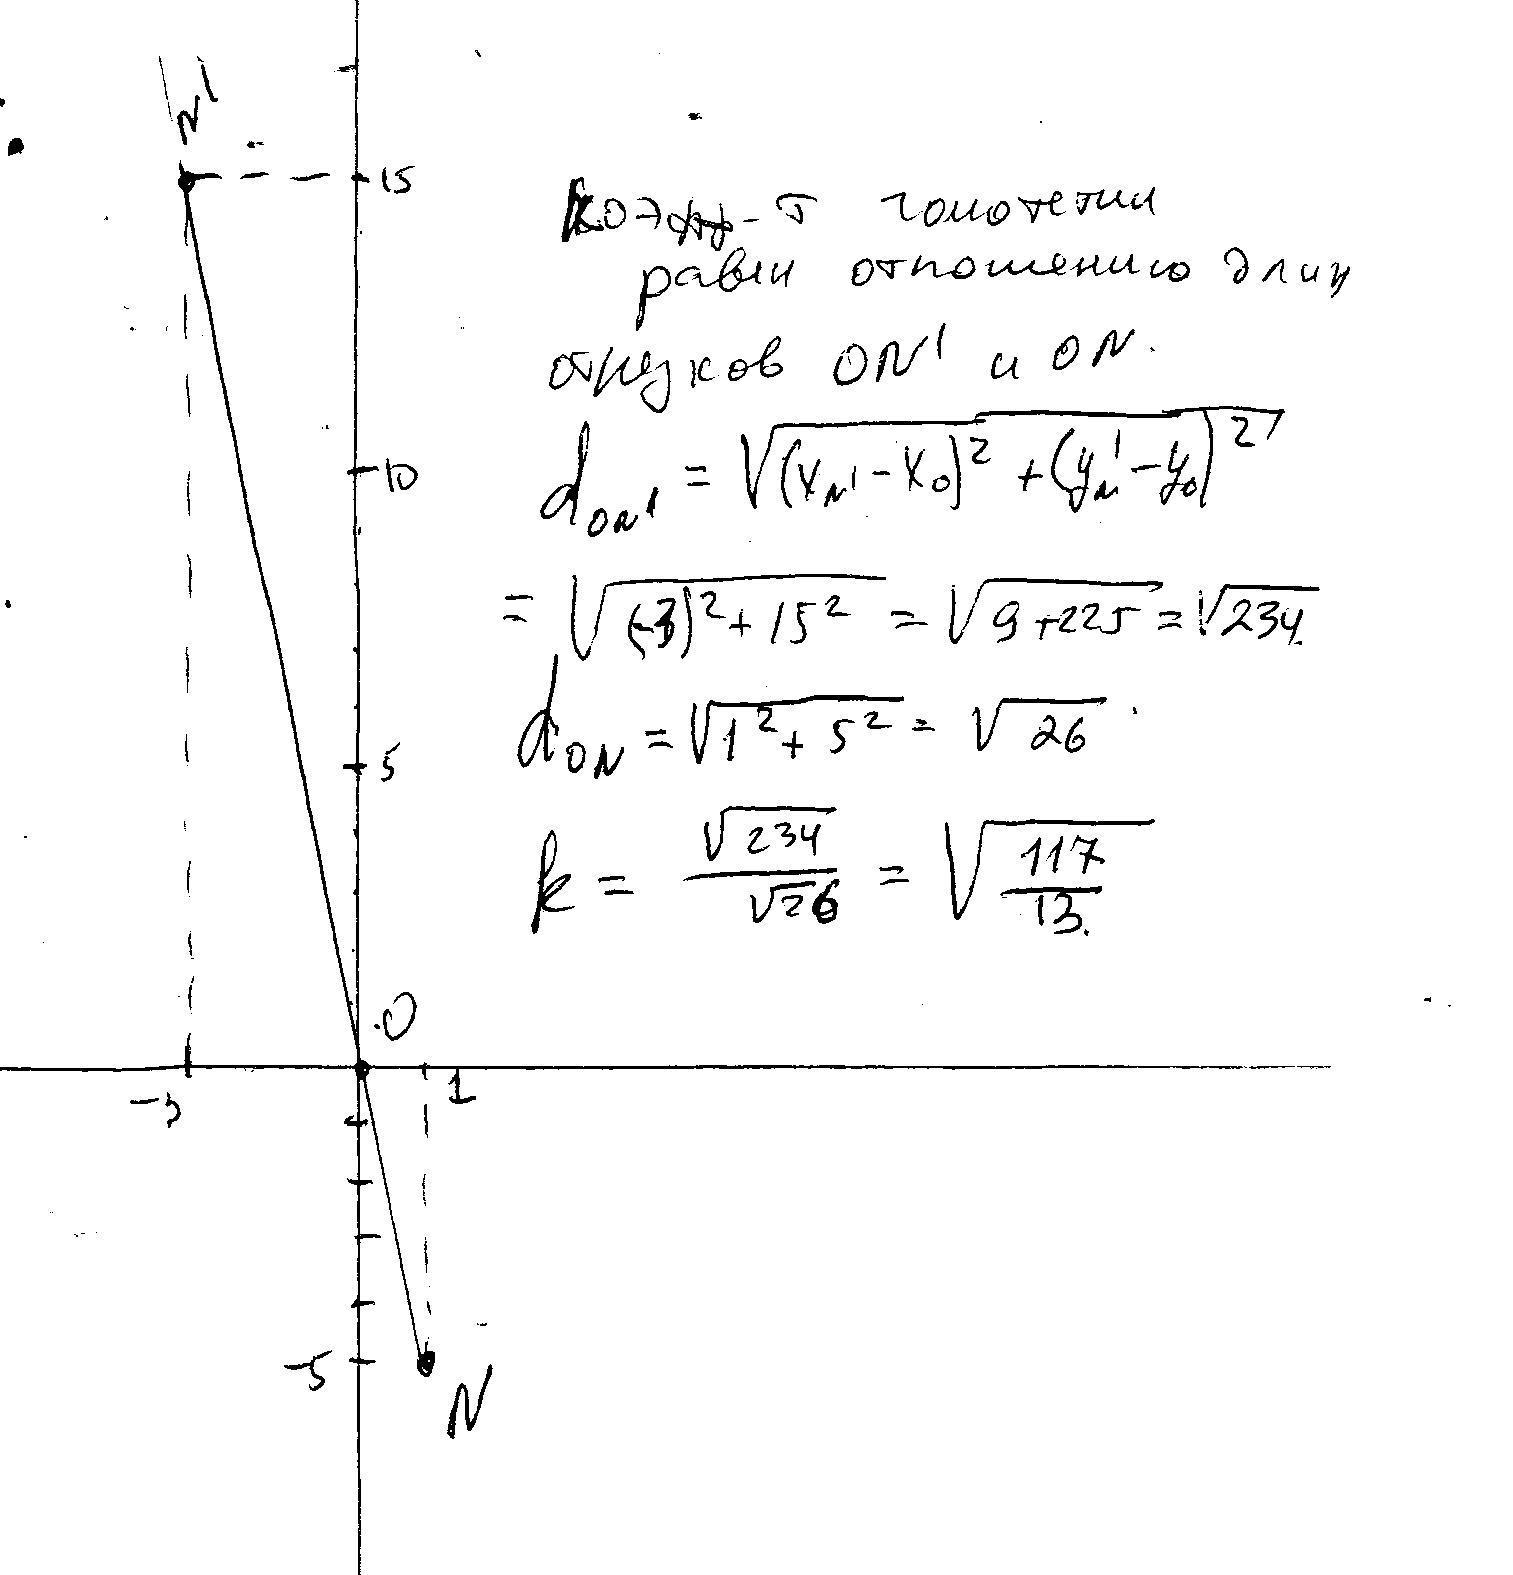 N'
15
Коэфф-т гомотетии
равен отношению длин
отрезков ON' и ON.
10
d_{ON'} = √((x_{N'} - x_0)² + (y_{N'} - y_0)²)
= √((-3)² + 15²) = √(9+225) = √234.
d_{ON} = √(1² + 5²) = √26
5
k = √234/√26 = √(117/13).
O
-3
1
-5
N